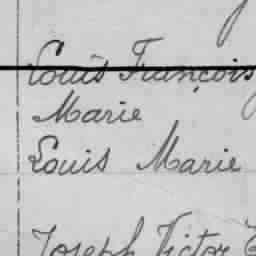 Louis François
Marie
Louis Marie
Joseph Victor